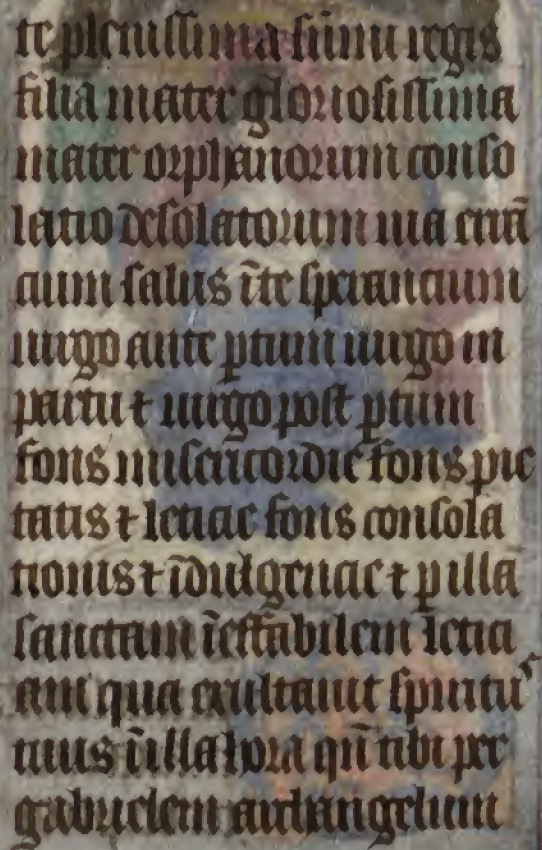 te plenissima sum̄i regis
filia mater gloriosissima
mater orphanorum conso
latio desolatorum uia erran̄
cium salus ī te sperancium
uirgo ante ꝑtum uirgo in
partu ⁊ uirgo post ꝑtum
fons misericordie fons pie
tatis ⁊ leticie fons consola
tionis ⁊ īdulgencie ⁊ ꝑ illā
sanctam īeffabilem leticia
am qua exultauit spiritus
tuus ī illa hora qn̄ tibi per
gabrielem archangelum